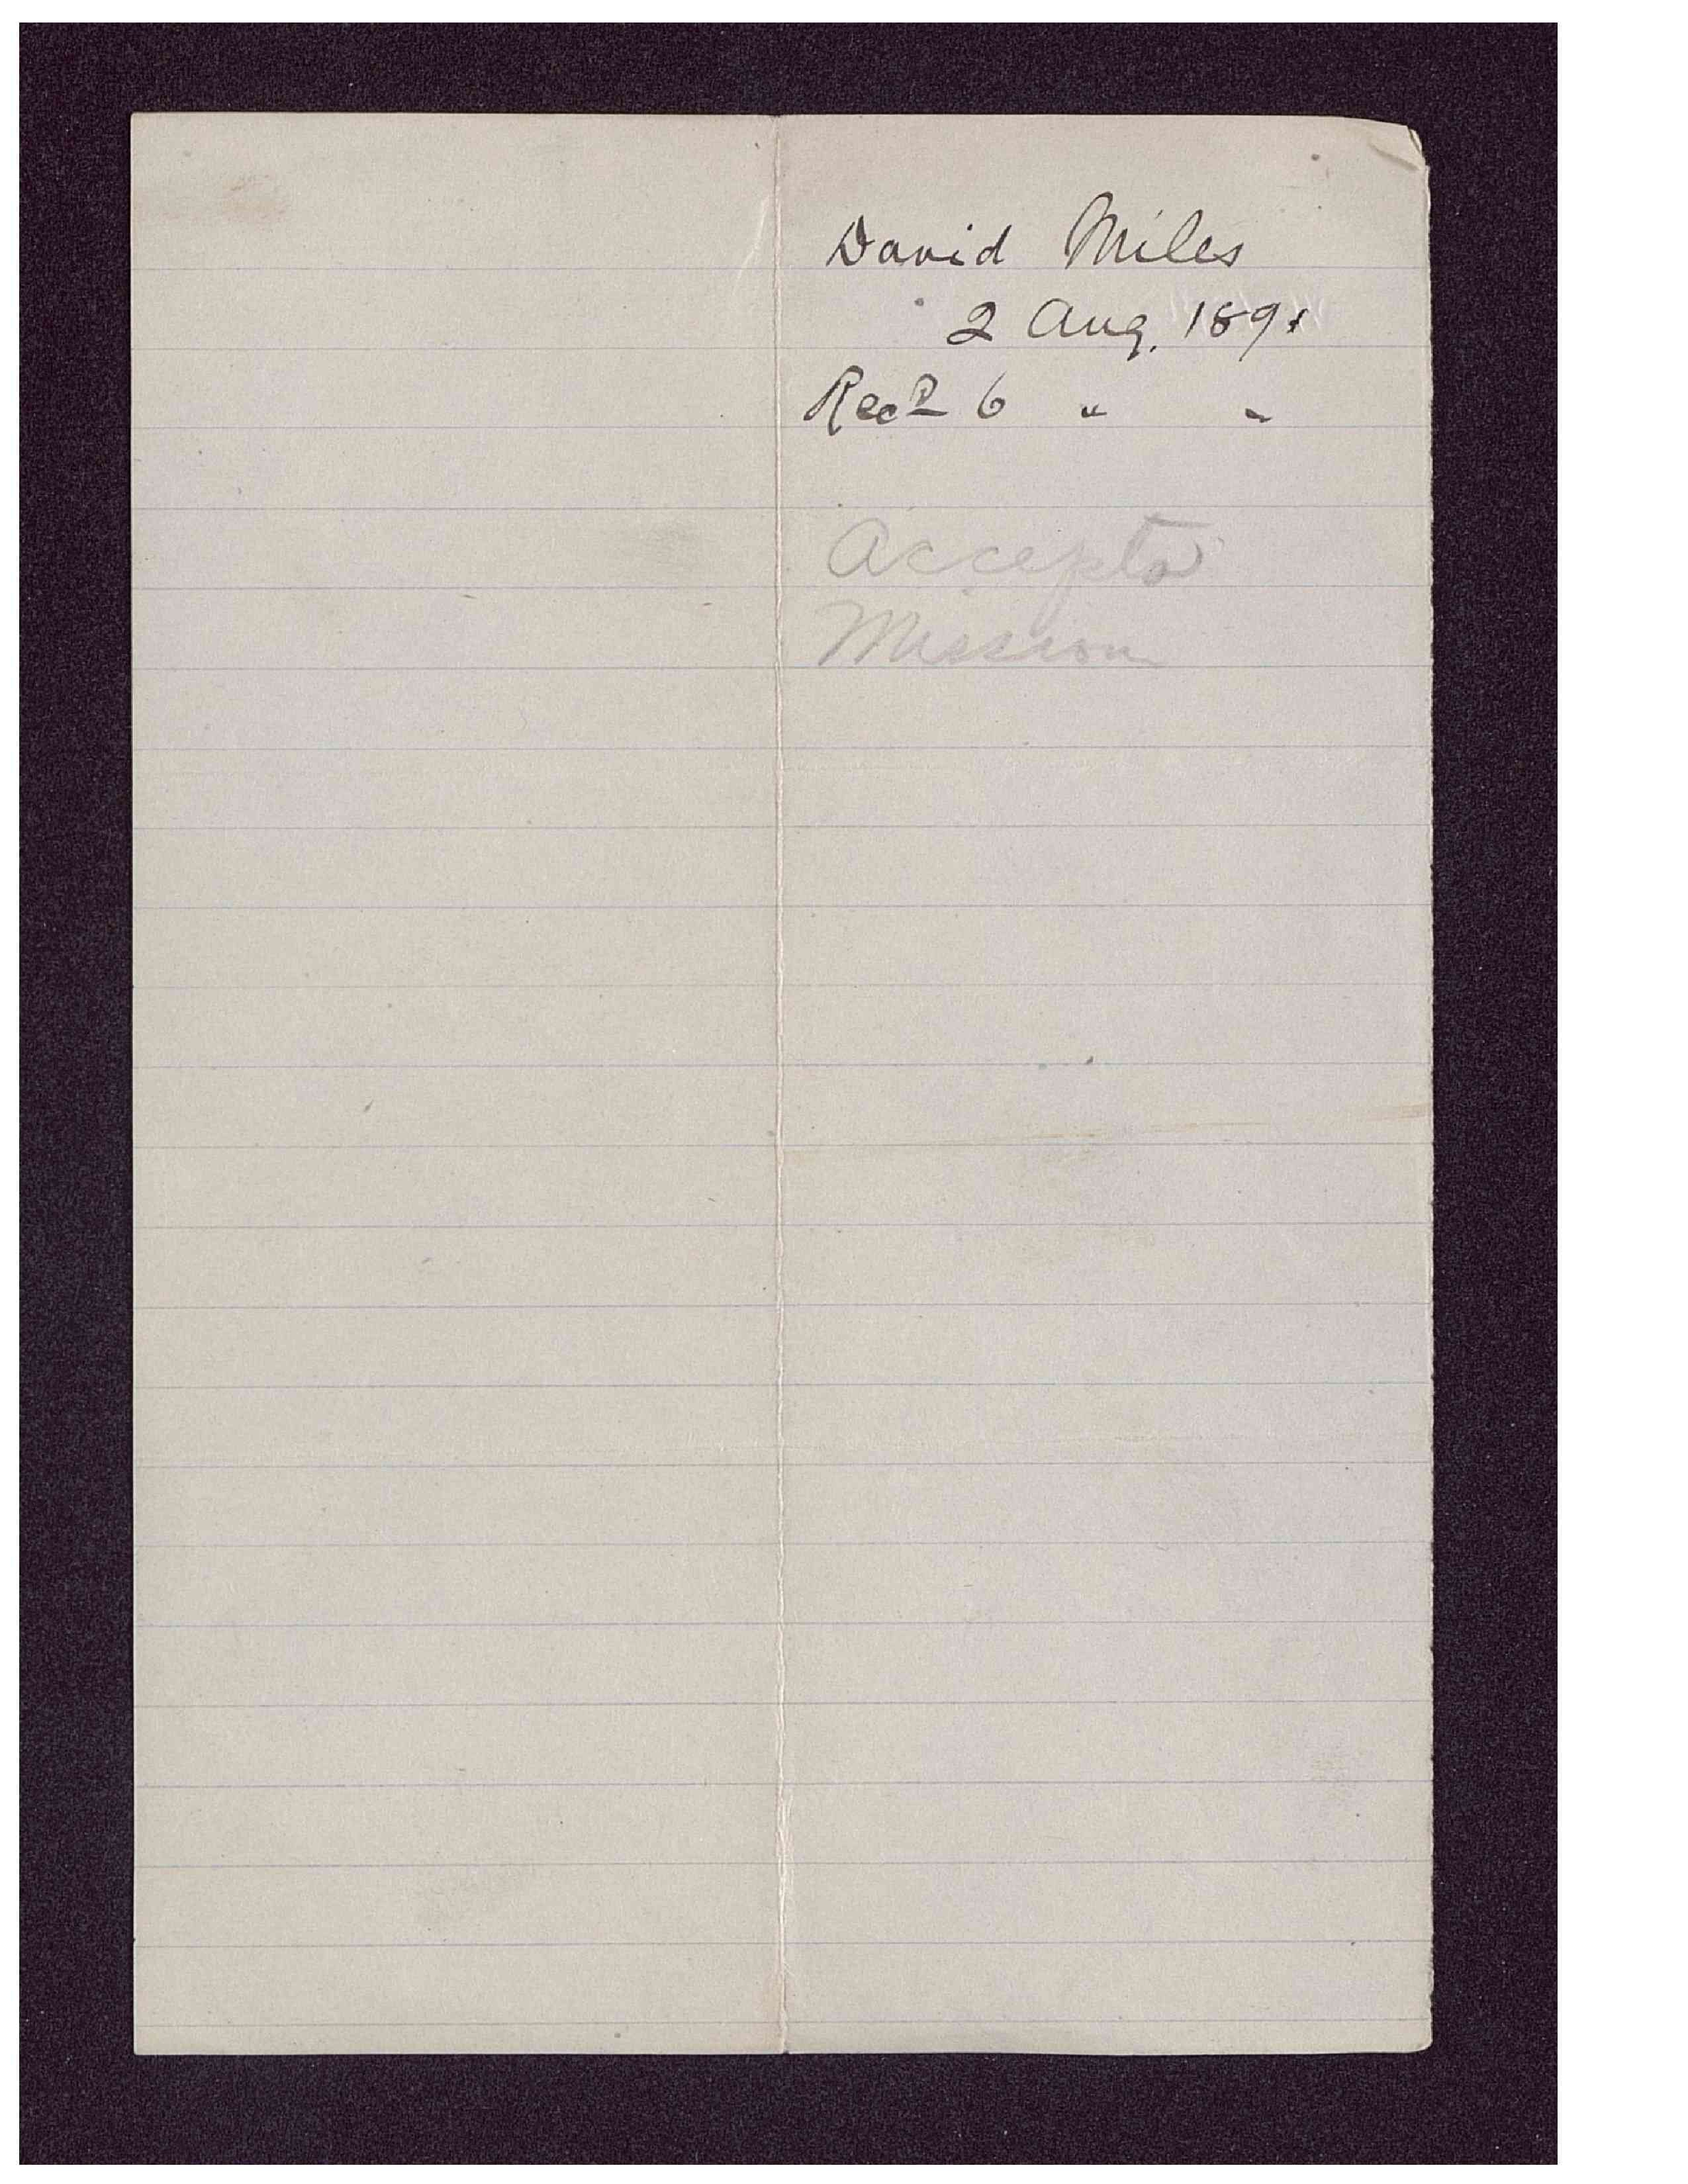 David Miles
2 Aug. 1891
Recd 6 " "
Accepts
Mission